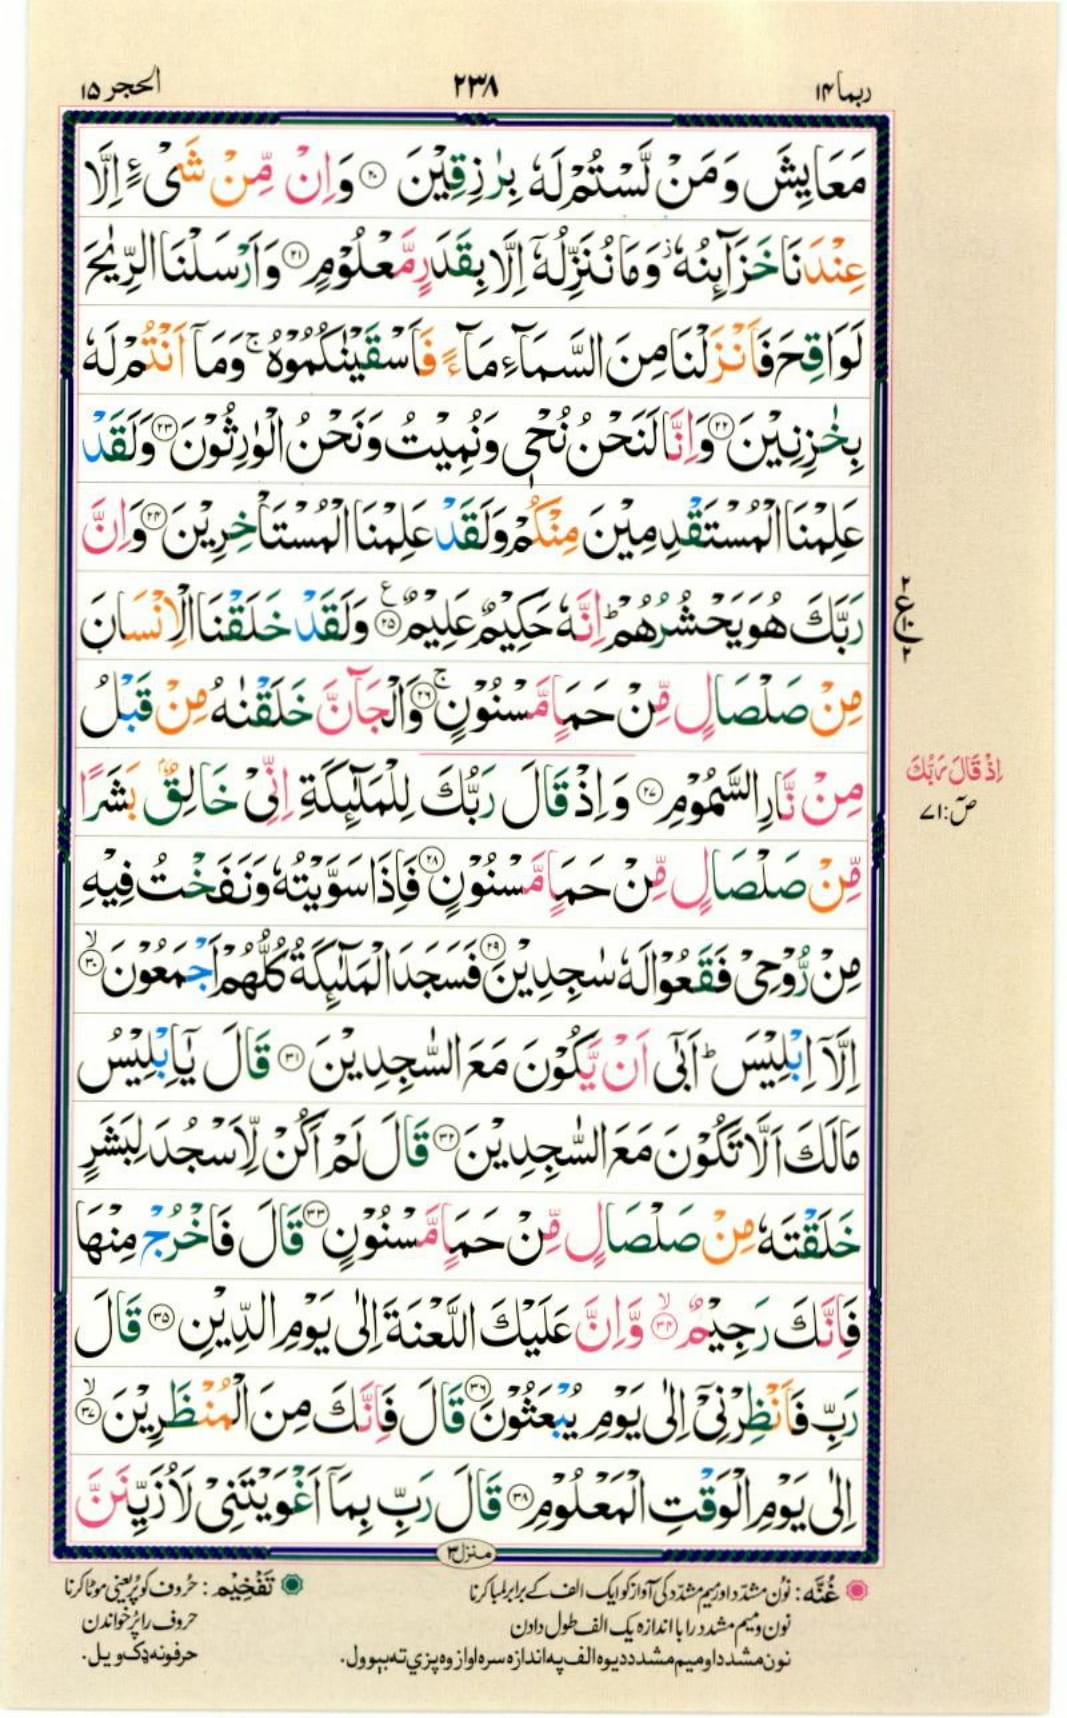 ربما ١٤
٢٣٨
الحجر ١٥
مَعَايِشَ وَمَنْ لَّسْتُمْ لَهٗ بِرٰزِقِيْنَ ﴿۲۰﴾ وَاِنْ مِّنْ شَيْءٍ اِلَّا
عِنْدَنَا خَزَآئِنُهٗ ؗ وَمَا نُنَزِّلُهٗۤ اِلَّا بِقَدَرٍ مَّعْلُوْمٍ ﴿۲۱﴾ وَاَرْسَلْنَا الرِّيٰحَ
لَوَاقِحَ فَاَنْزَلْنَا مِنَ السَّمَآءِ مَآءً فَاَسْقَيْنٰكُمُوْهُ ۚ وَمَاۤ اَنْتُمْ لَهٗ
بِخٰزِنِيْنَ ﴿۲۲﴾ وَاِنَّا لَنَحْنُ نُحْيٖ وَنُمِيْتُ وَنَحْنُ الْوٰرِثُوْنَ ﴿۲۳﴾ وَلَقَدْ
عَلِمْنَا الْمُسْتَقْدِمِيْنَ مِنْكُمْ وَلَقَدْ عَلِمْنَا الْمُسْتَاْخِرِيْنَ ﴿۲۴﴾ وَاِنَّ
رَبَّكَ هُوَ يَحْشُرُهُمْ ؕ اِنَّهٗ حَكِيْمٌ عَلِيْمٌ ﴿۲۵﴾ ع وَلَقَدْ خَلَقْنَا الْاِنْسَانَ
٢
ع
١٠
٢
مِنْ صَلْصَالٍ مِّنْ حَمَاٍ مَّسْنُوْنٍ ۚ ﴿۲۶﴾ وَالْجَآنَّ خَلَقْنٰهُ مِنْ قَبْلُ
مِنْ نَّارِ السَّمُوْمِ ﴿۲۷﴾ وَاِذْ قَالَ رَبُّكَ لِلْمَلٰٓئِكَةِ اِنِّيْ خَالِقٌۢ بَشَرًا
اِذْ قَالَ رَبُّكَ
صٓ: ٧١
مِّنْ صَلْصَالٍ مِّنْ حَمَاٍ مَّسْنُوْنٍ ﴿۲۸﴾ فَاِذَا سَوَّيْتُهٗ وَنَفَخْتُ فِيْهِ
مِنْ رُّوْحِيْ فَقَعُوْا لَهٗ سٰجِدِيْنَ ﴿۲۹﴾ فَسَجَدَ الْمَلٰٓئِكَةُ كُلُّهُمْ اَجْمَعُوْنَ ۙ ﴿۳۰﴾
اِلَّاۤ اِبْلِيْسَ ؕ اَبٰۤى اَنْ يَّكُوْنَ مَعَ السّٰجِدِيْنَ ﴿۳۱﴾ قَالَ يٰۤاِبْلِيْسُ
مَالَكَ اَلَّا تَكُوْنَ مَعَ السّٰجِدِيْنَ ﴿۳۲﴾ قَالَ لَمْ اَكُنْ لِّاَسْجُدَ لِبَشَرٍ
خَلَقْتَهٗ مِنْ صَلْصَالٍ مِّنْ حَمَاٍ مَّسْنُوْنٍ ﴿۳۳﴾ قَالَ فَاخْرُجْ مِنْهَا
فَاِنَّكَ رَجِيْمٌ ۙ ﴿۳۴﴾ وَّاِنَّ عَلَيْكَ اللَّعْنَةَ اِلٰى يَوْمِ الدِّيْنِ ﴿۳۵﴾ قَالَ
رَبِّ فَاَنْظِرْنِيْۤ اِلٰى يَوْمِ يُبْعَثُوْنَ ﴿۳۶﴾ قَالَ فَاِنَّكَ مِنَ الْمُنْظَرِيْنَ ۙ ﴿۳۷﴾
اِلٰى يَوْمِ الْوَقْتِ الْمَعْلُوْمِ ﴿۳۸﴾ قَالَ رَبِّ بِمَاۤ اَغْوَيْتَنِيْ لَاُزَيِّنَنَّ
منزل ٣
غُنَّه: نُون مشدّد اور میم مشدّد کی آواز کو ایک الف کے برابر لمبا کرنا
نون و میم مشدد را با اندازه یک الف طول دادن
نون مشدد او میم مشدد دیوه الف په اندازه سره اواز وه پزي ته بېوول.
تَفْخِیْم: حُروف کو پُر یعنی موٹا کرنا
حروف را پُر خواندن
حرفونه ډک ویل.